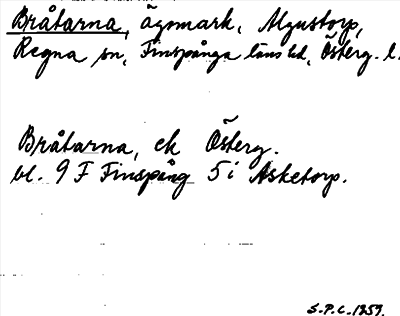 Bråtarna, ägomark, Algustorp,
Regna sn, Finspånga läns hd, Österg. l.
Bråtarna, ek Österg.
bl. 9 F Finspång 5 i Asketorp.
S.P.C. 1959.